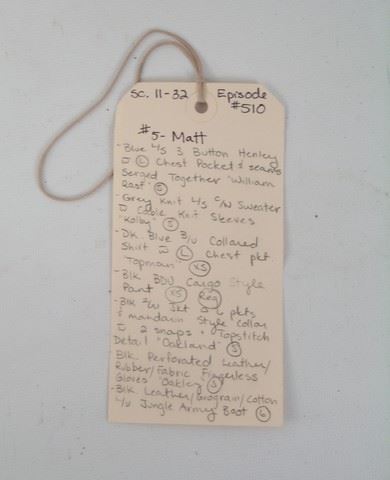 Sc. 11-32 Episode
#510
#5- Matt
-Blue L/S 3 Button Henley
w (L) Chest Pocket & seams
Serged Together "William
Rast" (S)
-Grey Knit L/S C/N Sweater
w Cable Knit Sleeves
"Kolby" (S)
-Dk. Blue B/U Collared
Shirt w (L) Chest pkt.
"Topman" (XS)
-Blk BDU Cargo Style
Pant (XS) (Reg)
-Blk Z/U Jkt w pkts
& mandarin Style Collar
w 2 snaps + Topstitch
Detail "Oakland" (S)
Blk. Perforated Leather/
Rubber/Fabric Fingerless
Gloves "Oakley" (S)
-Blk. Leather/Grograin/Cotton
L/U Jungle Army Boot (6)